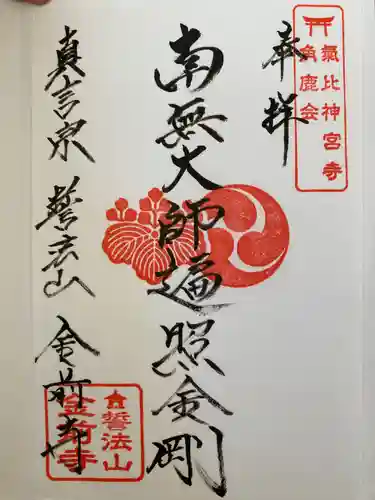 奉拝
氣比神宮寺
角鹿会
南無大師遍照金剛
真言宗 誓法山 金前寺
誓法山
金前寺